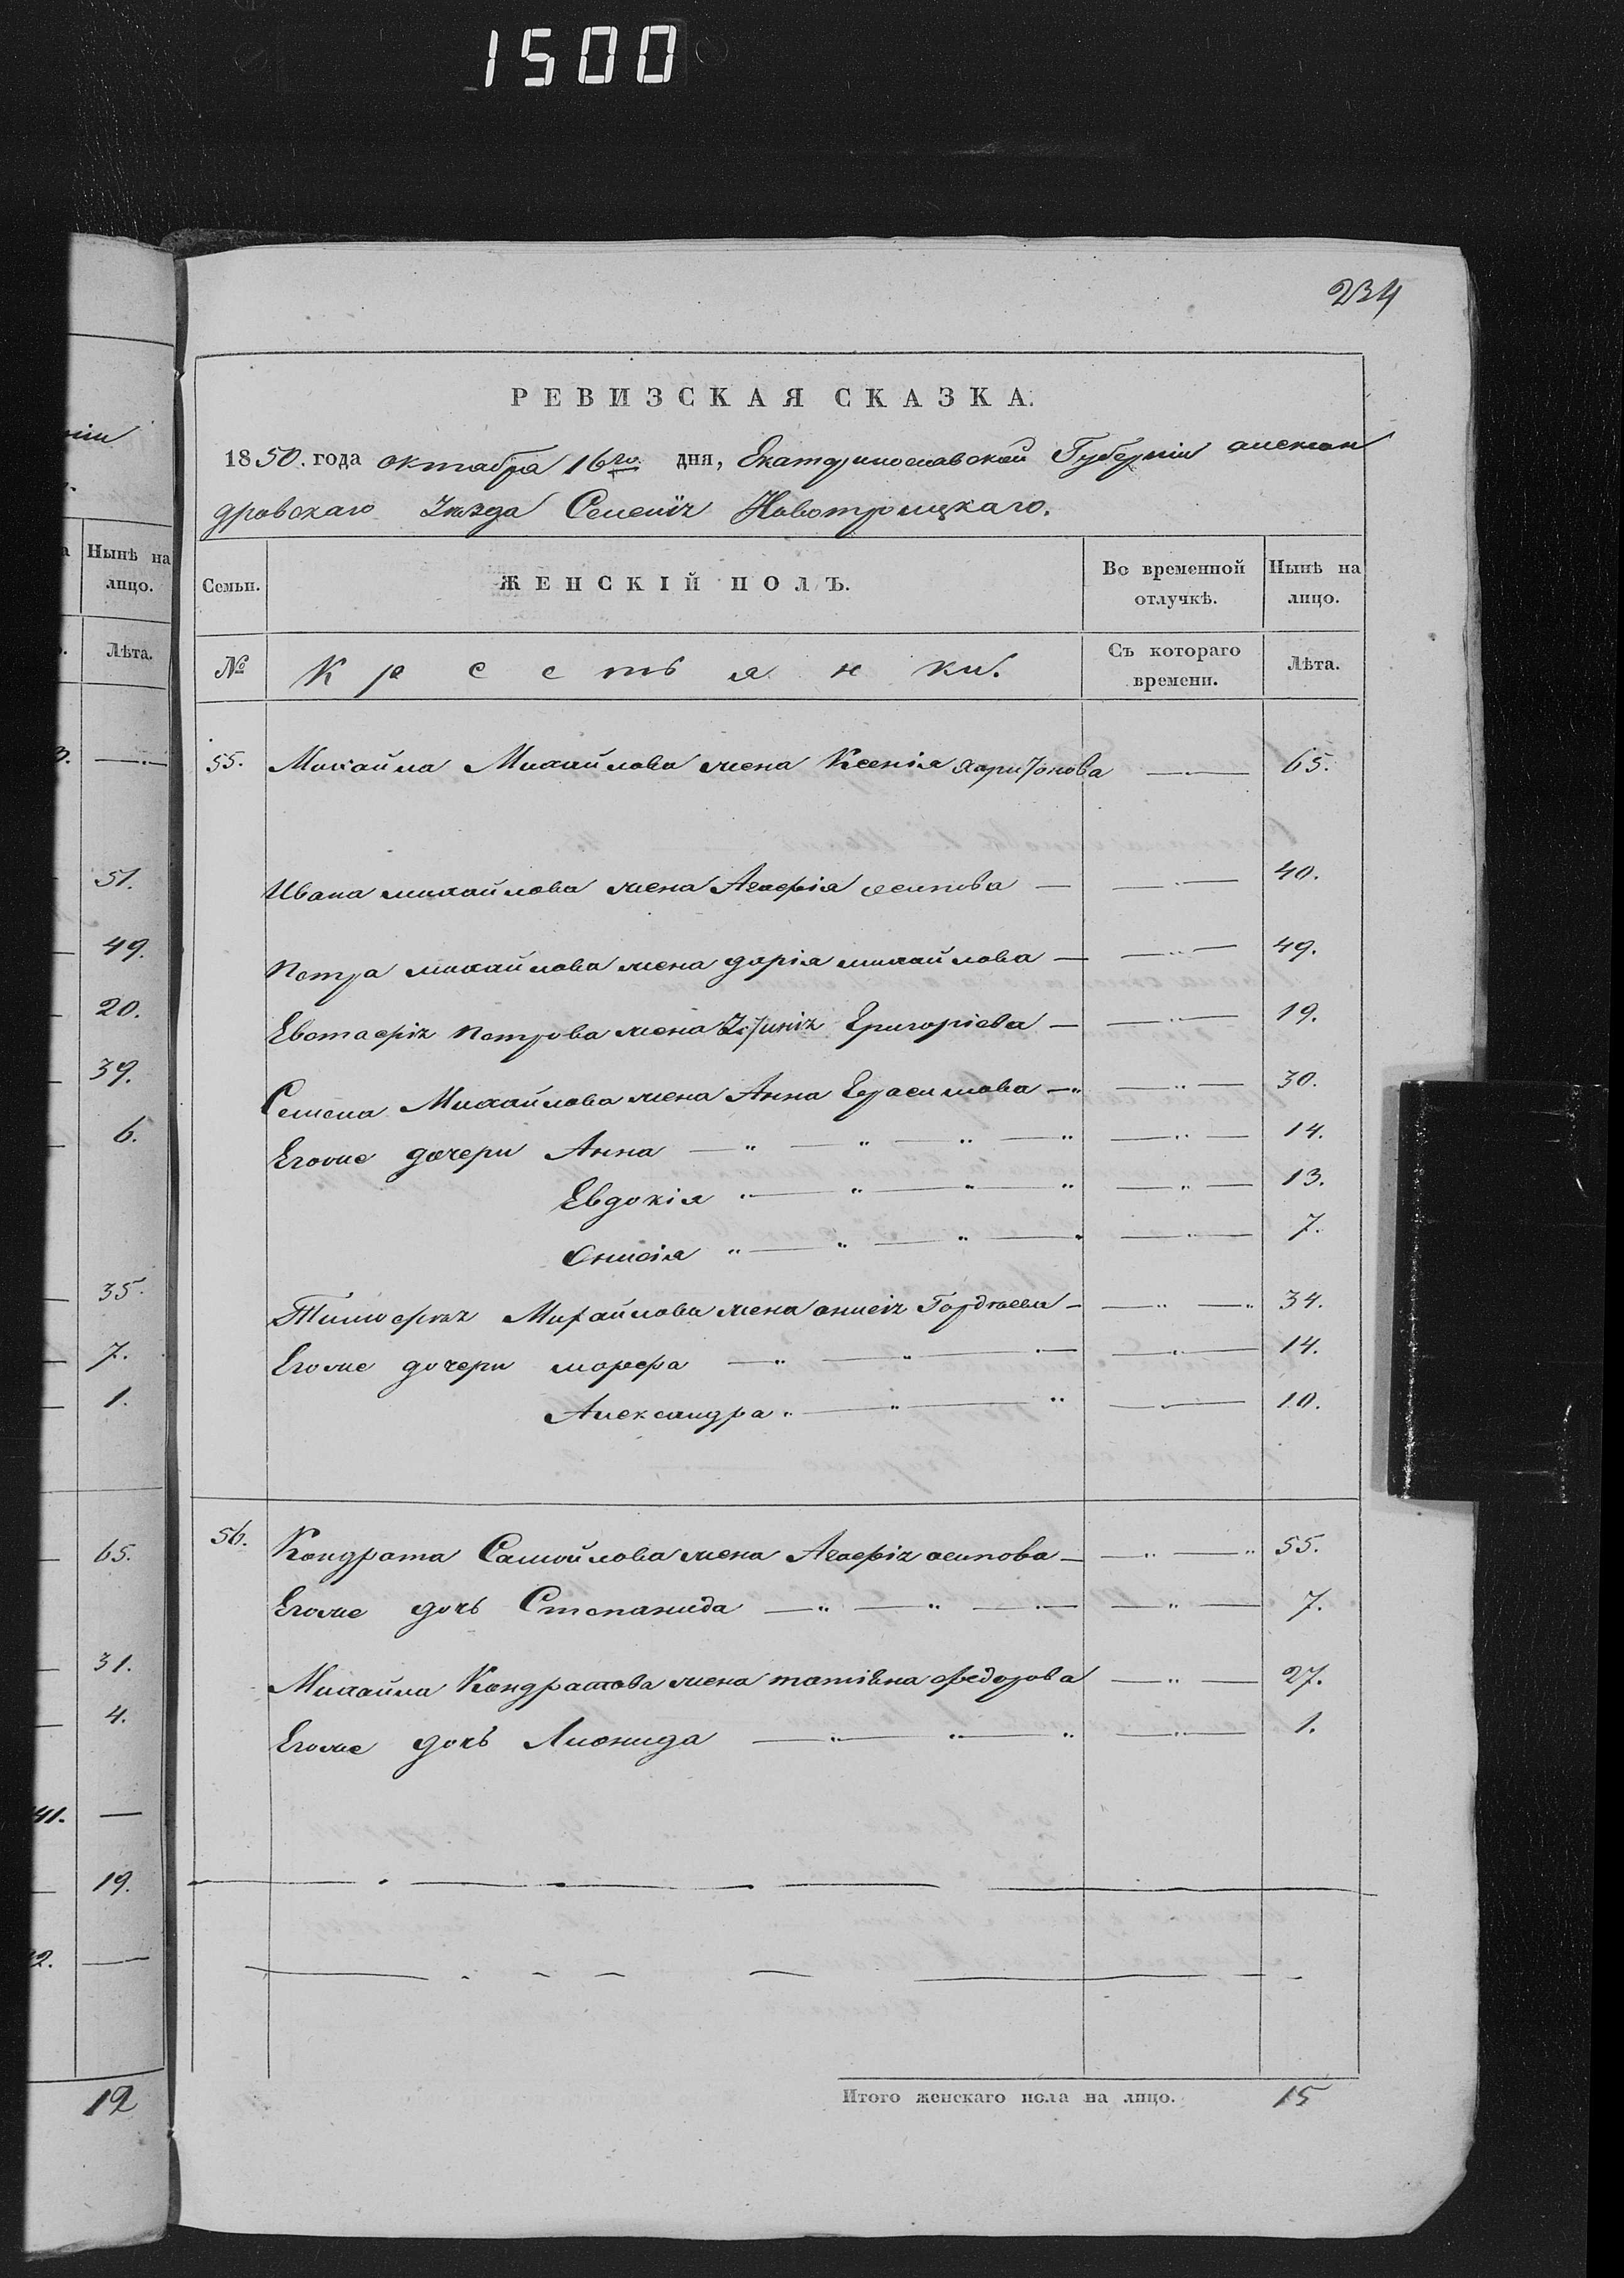 1500
234
РЕВИЗСКАЯ СКАЗКА.
1850. года октабра 16го дня, Екатеринославской Губерніи алексан
дровскаго Уѣзда Селенія Новотроицкаго.
Нынѣ на
лицо.
Лѣта.
51.
49.
20.
39.
6.
35.
7.
1.
65.
31.
4.
41. —
19.
12
Семьи. ЖЕНСКІЙ ПОЛЪ. Во временной отлучкѣ. Нынѣ на лицо.
№ Крестьянки. Съ котораго времени. Лѣта.
55. Михайла Михайлова жена Ксенія харитонова — 65.
Ивана михайлова жена Агафія осипова — 40.
Петра михайлова жена дарія михайлова — 49.
Евстафія Петрова жена Григоріева — 19.
Семена Михайлова жена Анна Герасимова — 30.
Егоже дочери Анна — 14.
Евдокія — 13.
Онисія — 7.
Тимофея Михайлова жена онисія Гордѣева — 34.
Егоже дочери марфа — 14.
Александра — 10.
56. Кондрата Самойлова жена Агафія осипова — 55.
Егоже дочь Степанида — 7.
Михайла Кондратова жена татіяна федорова — 27.
Егоже дочь Леонида — 1.
Итого женскаго пола на лицо. 15